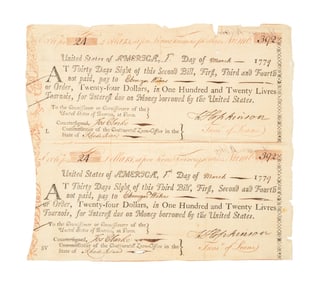 24 Numb. 392
United States of AMERICA, 1st Day of March 1779
AT Thirty Days Sight of this Second Bill, First, Third and Fourth
not paid, pay to Ebenezer
or Order, Twenty-four Dollars, in One Hundred and Twenty Livres
Tournois, for Interest due on Money borrowed by the United States.
To the Commissioner or Commissioners of the
United States of America, at Paris.
Countersigned, Jos Clarke
Commissioner of the Continental Loan-Office in
the State of Rhode Island
F Hopkinson
Treasr. of Loans
24 Numb. 392
United States of AMERICA, 1st Day of March 1779
AT Thirty Days Sight of this Third Bill, First, Second and Fourth
not paid, pay to Ebenezer
or Order, Twenty-four Dollars, in One Hundred and Twenty Livres
Tournois, for Interest due on Money borrowed by the United States.
To the Commissioner or Commissioners of the
United States of America, at Paris.
Countersigned, Jos Clarke
Commissioner of the Continental Loan-Office in
the State of Rhode Island
F Hopkinson
Treasr. of Loans